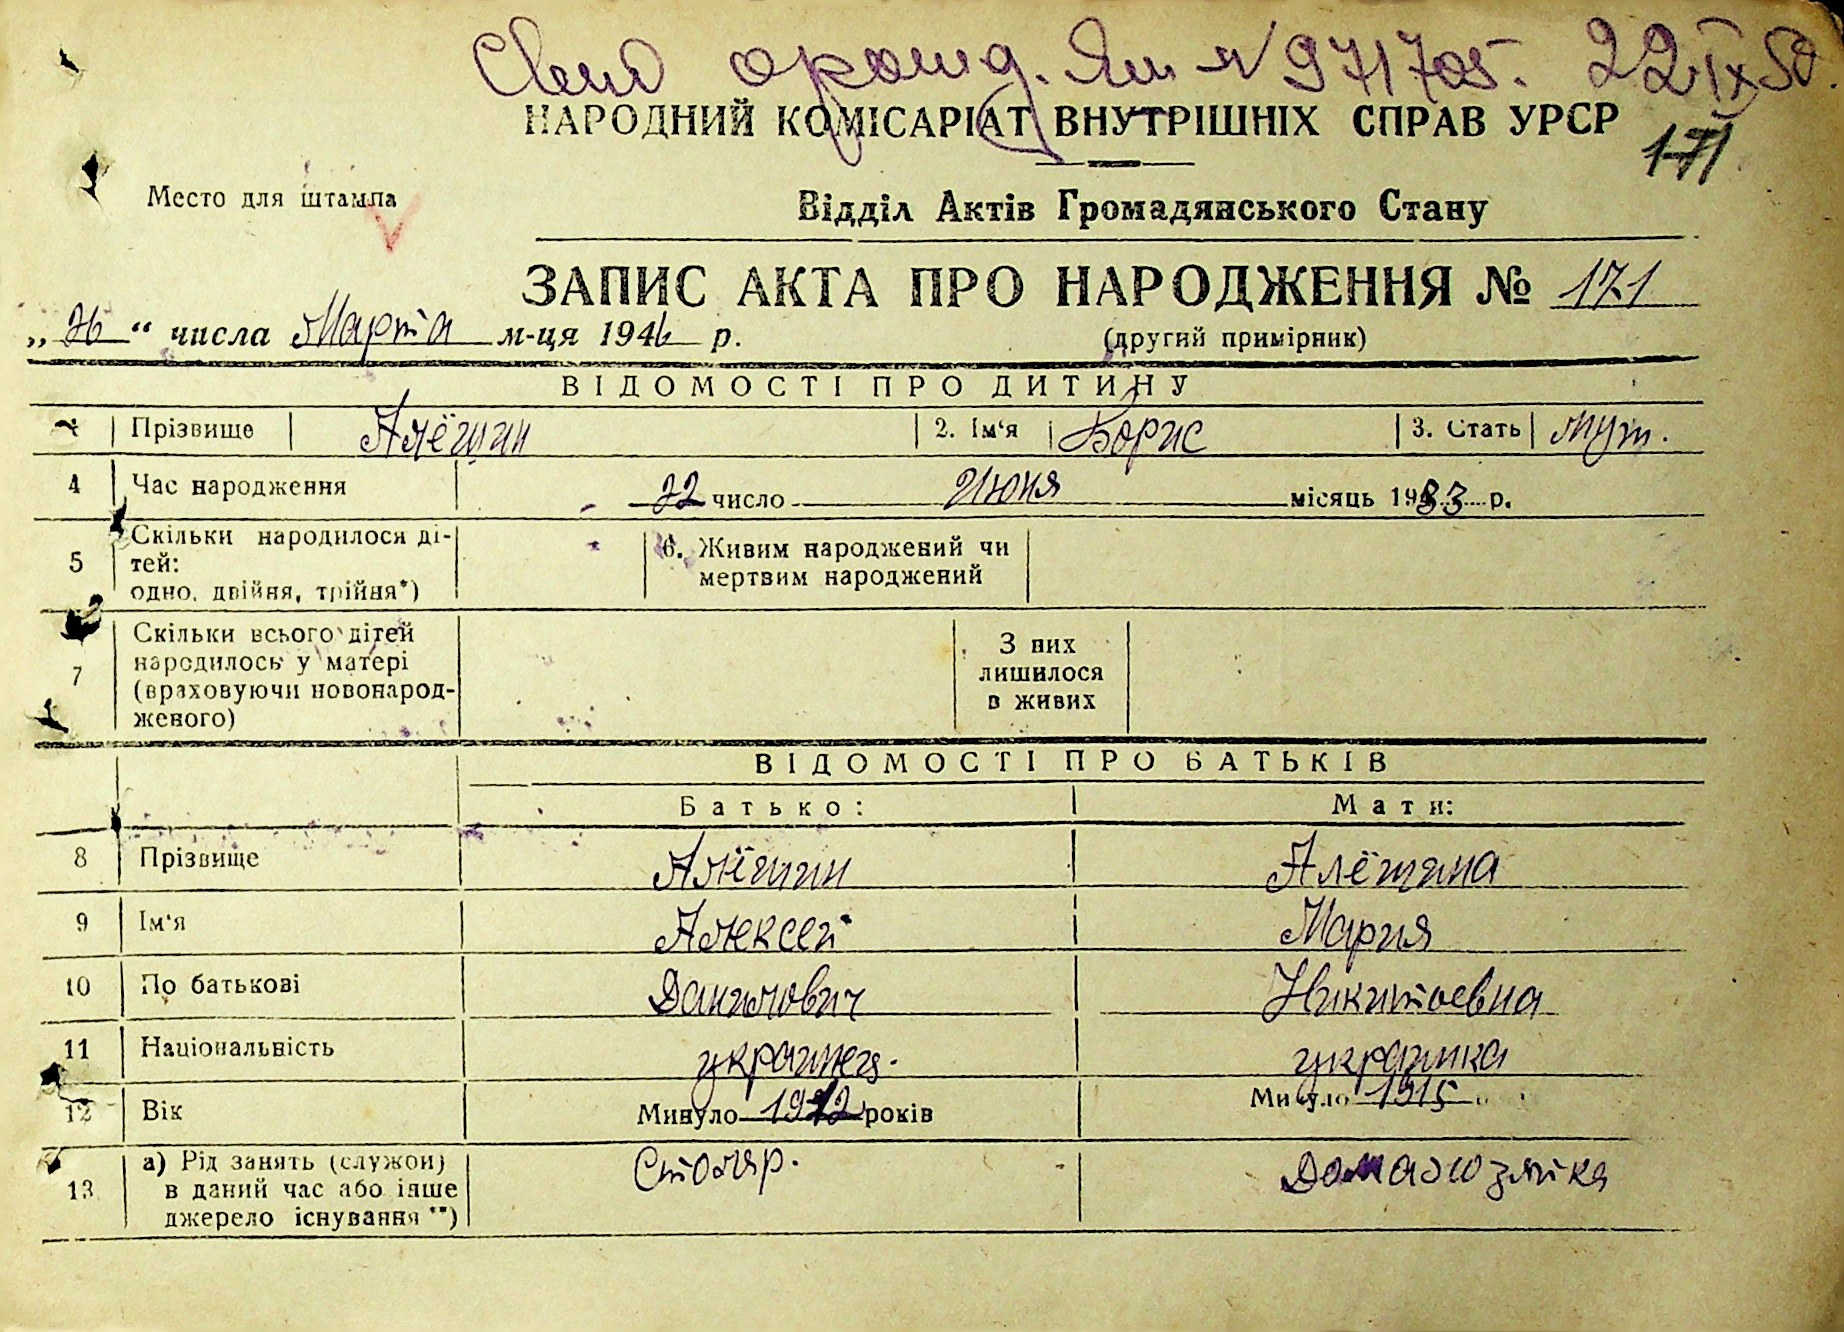 Свид о рожд. Яш № 971705. 22 IX 50.
НАРОДНИЙ КОМІСАРІАТ ВНУТРІШНІХ СПРАВ УРСР
171
Место для штампа
Відділ Актів Громадянського Стану
ЗАПИС АКТА ПРО НАРОДЖЕННЯ № 171
„26“ числа Марта м-ця 1946 р. (другий примірник)
ВІДОМОСТІ ПРО ДИТИНУ
1 Прізвище Алёшин 2. Ім‘я Борис 3. Стать муж.
4 Час народження 22 число Июня місяць 1933 р.
5 Скільки народилося ді-
тей:
одно, двійня, трійня*)
6. Живим народжений чи
мертвим народжений
7 Скільки всього дітей
народилось у матері
(враховуючи новонарод-
женого)
З них
лишилося
в живих
ВІДОМОСТІ ПРО БАТЬКІВ
Батько: Мати:
8 Прізвище Алёшин Алёшина
9 Ім‘я Алексей Мария
10 По батькові Данилович Никитоевна
11 Національність украинец. украинка
12 Вік Минуло 1912 років Минуло 1915
13 а) Рід занять (служби)
в даний час або інше
джерело існування**)
Столяр. Домахозяйка